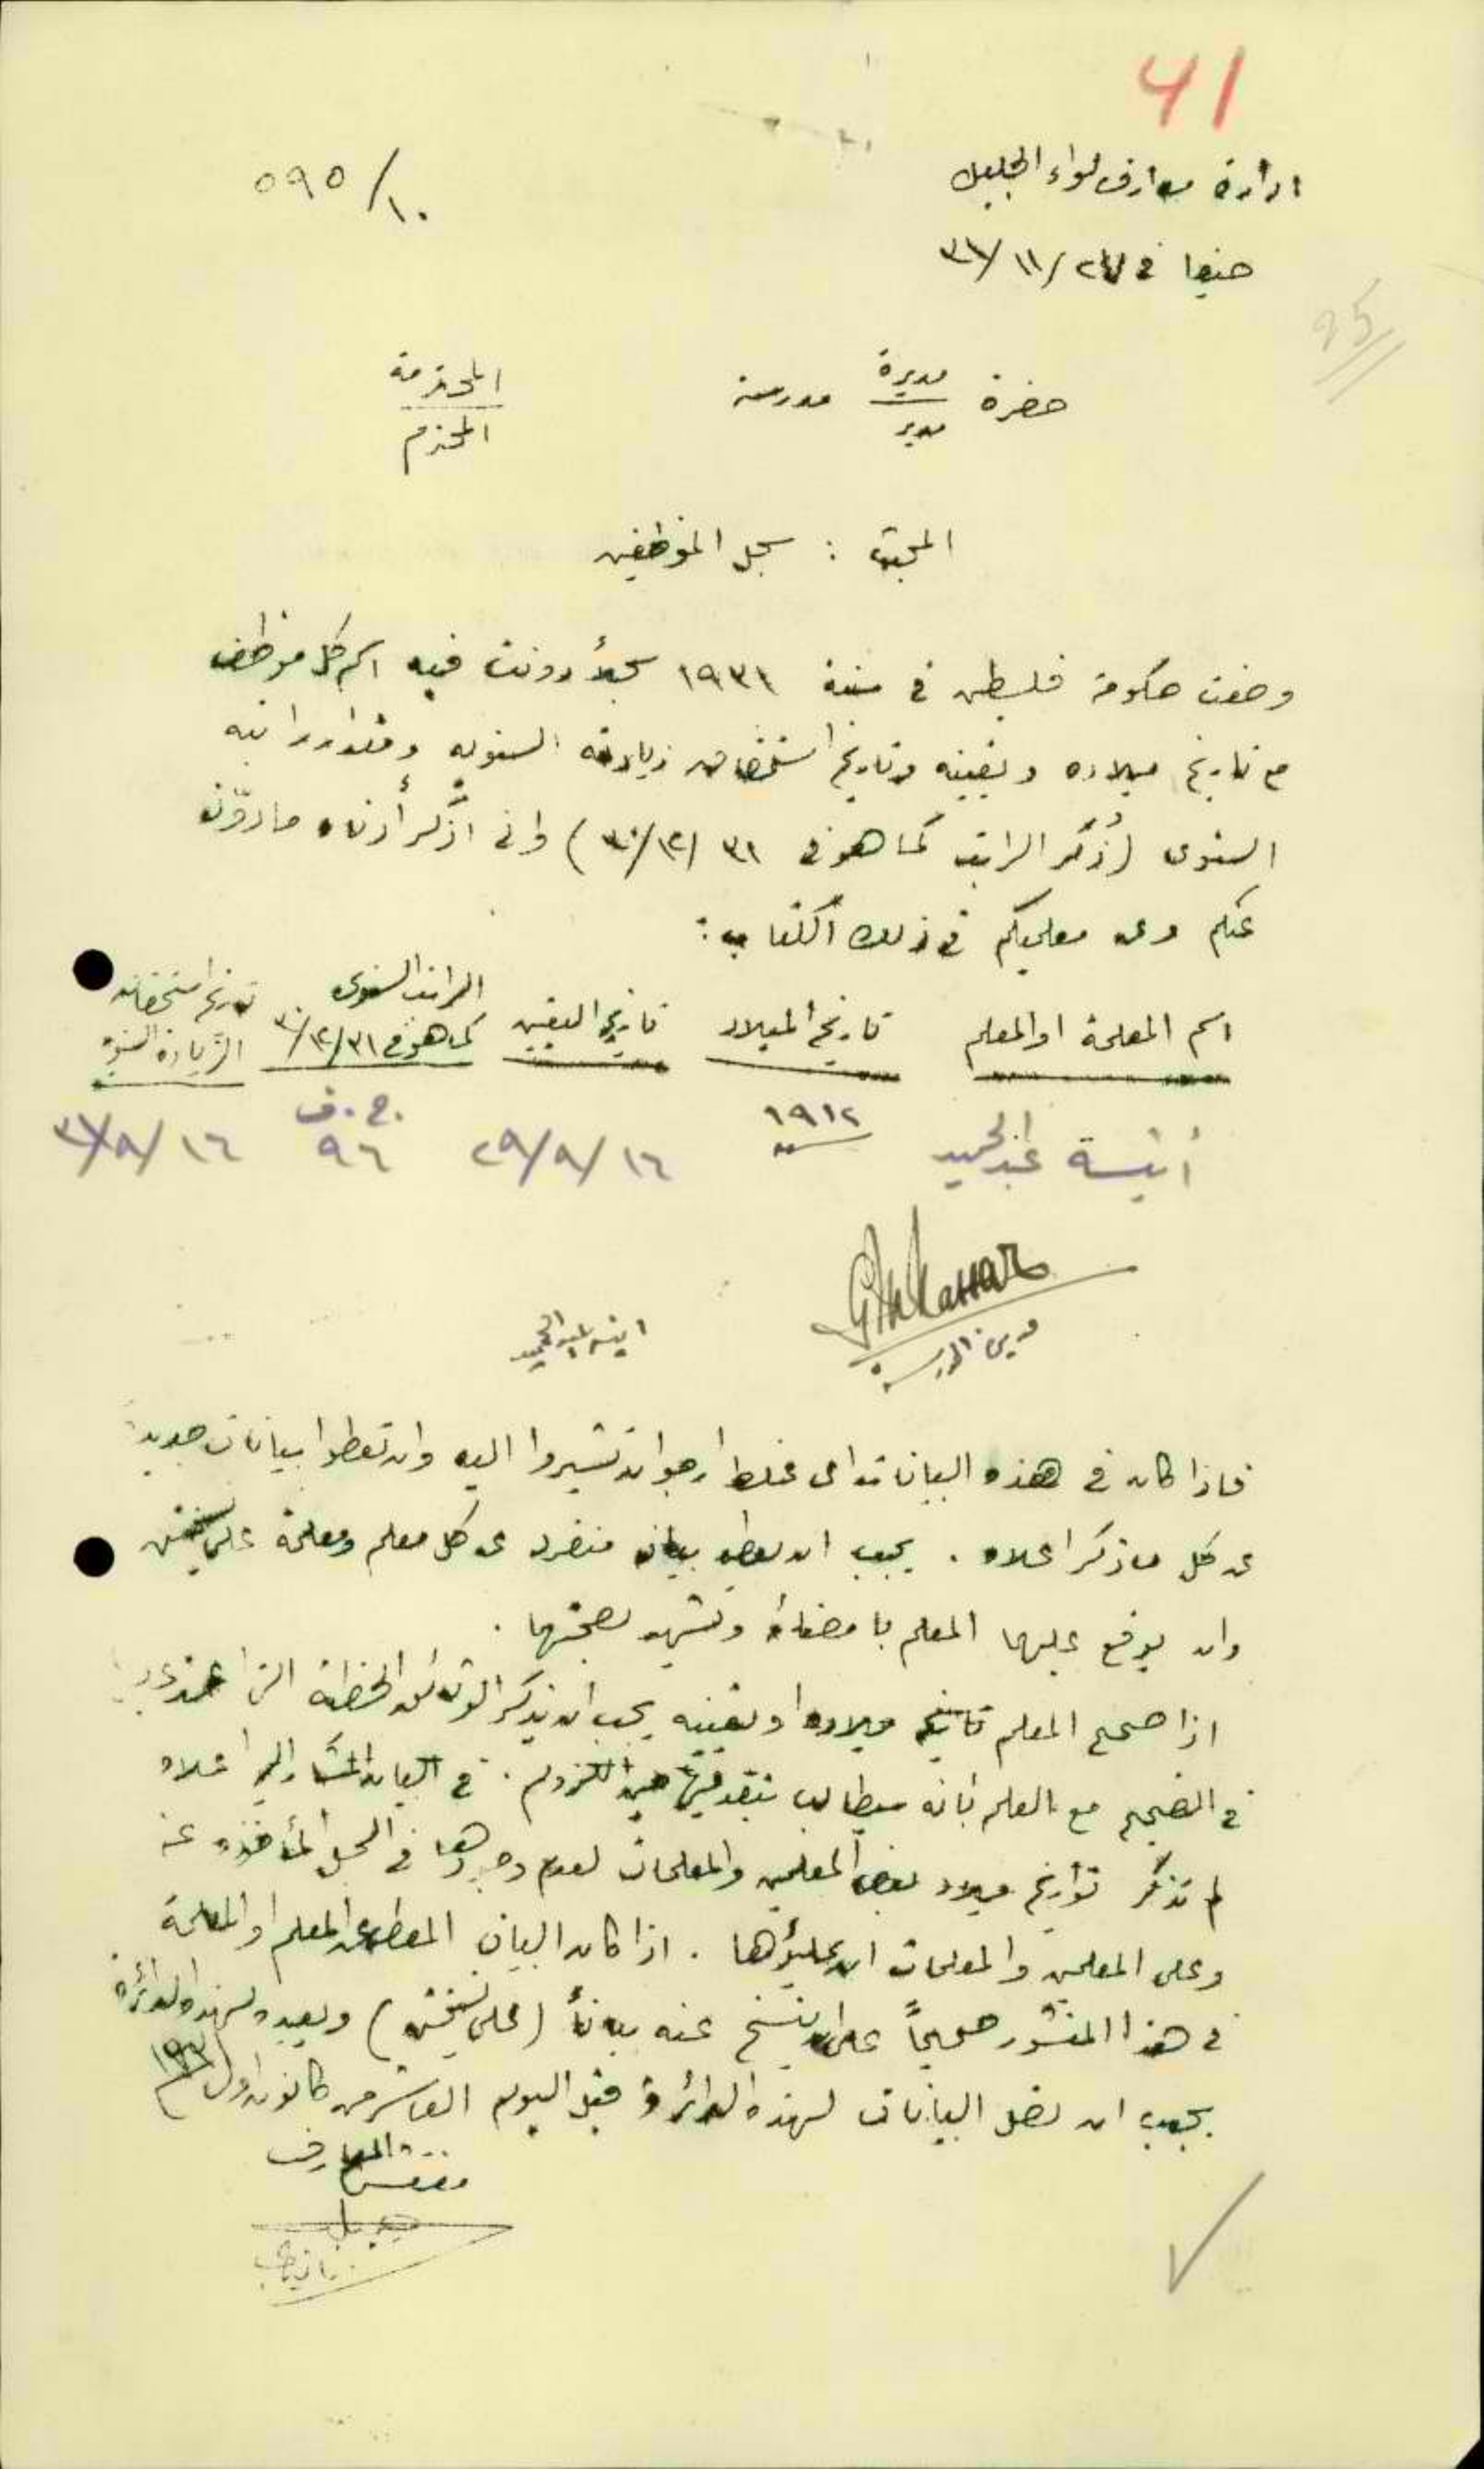 41
ادارة معارف لواء الجليل
٥٩٥/١٠
حيفا في ٢٧/١١/٣١
25
حضرة مديرة مدرسة المحترمة
مدير المحترم
المبحث : سجل الموظفين
وضعت حكومة فلسطين في سنة ١٩٣١ سجلاً دونت فيه اسم كل موظف
مع تاريخ ميلاده وتعيينه وتاريخ استحقاق زيادته السنوية ومقدار راتبه
السنوي (ذُكر الراتب كما هو في ٣١/١٢/٣٠) واني اذكر أدناه ما دوّن
عنكم وعن معلميكم في ذلك الكتاب :
اسم المعلمة او المعلم تاريخ الميلاد تاريخ التعيين الراتب السنوي كما هو في ٣١/١٢/٣٠ تاريخ استحقاق الزيادة السنوية
أنيسة عبد الحميد سنة ١٩١٢ ١٦/٩/٢٩ ج.ف. ٩٦ ١٦/٩/٣١
مديرة المدرسة
انيسة عبد الحميد
فاذا كان في هذه البيانات اي غلط ارجو ان تشيروا اليه وان تعطوا بيانات جديدة
عن كل ما ذكر اعلاه . يجب ان يعطى بيان منفرد عن كل معلم ومعلمة على نسختين
وان يوقع عليها المعلم بامضائه وتشهد بصحتها .
اذا صحح المعلم تاريخ ميلاده او تعيينه يجب ان يذكر الوثائق الخطية التي اعتمد عليها
في التصحيح مع العلم بانه سيطالب بتقديمها حين اللزوم . في البيان المشار اليه اعلاه
لم تذكر تواريخ ميلاد بعض المعلمين والمعلمات لعدم وجودها في السجل المأخوذه عنه
وعلى المعلمين والمعلمات ان يملؤها . اذا كان البيان المعطى عن المعلم او المعلمة
في هذا المنشور صحيحاً عليه ان ينسخ عنه بياناً (على نسختين) ويعيده لهذه الدائرة
يجب ان تصل البيانات لهذه الدائرة قبل اليوم العاشر من كانون اول ١٩٣١
مفتش المعارف